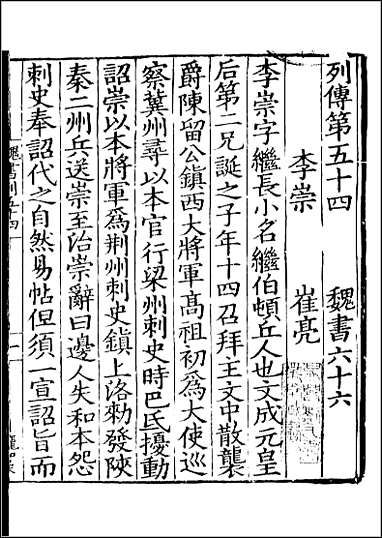 列傳第五十四　魏書六十六
李崇　崔亮
李崇字繼長小名繼伯頓丘人也文成元皇
后第二兄誕之子年十四召拜主文中散襲
爵陳留公鎮西大將軍髙祖初爲大使巡
察冀州尋以本官行梁州刺史時巴氐擾動
詔崇以本將軍爲荆州刺史鎮上洛勑發陝
秦二州兵送崇至治崇辭曰邊人失和本怨
刺史奉詔代之自然易帖但須一宣詔旨而
魏書列五十四
一